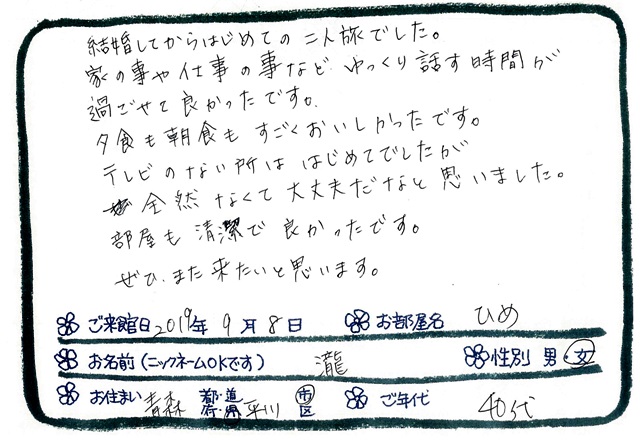 結婚してからはじめての二人旅でした。
家の事や仕事の事など、ゆっくり話す時間が
過ごせて良かったです。
夕食も朝食もすごくおいしかったです。
テレビのない所ははじめてでしたが
全然なくて大丈夫だなと思いました。
部屋も清潔で良かったです。
ぜひ、また来たいと思います。
ご来館日 2019年 9月 8日 お部屋名 ひめ
お名前(ニックネームOKです) 瀧 性別 男・女
お住まい 青森 都・道・府・県 平川 市区 ご年代 40代